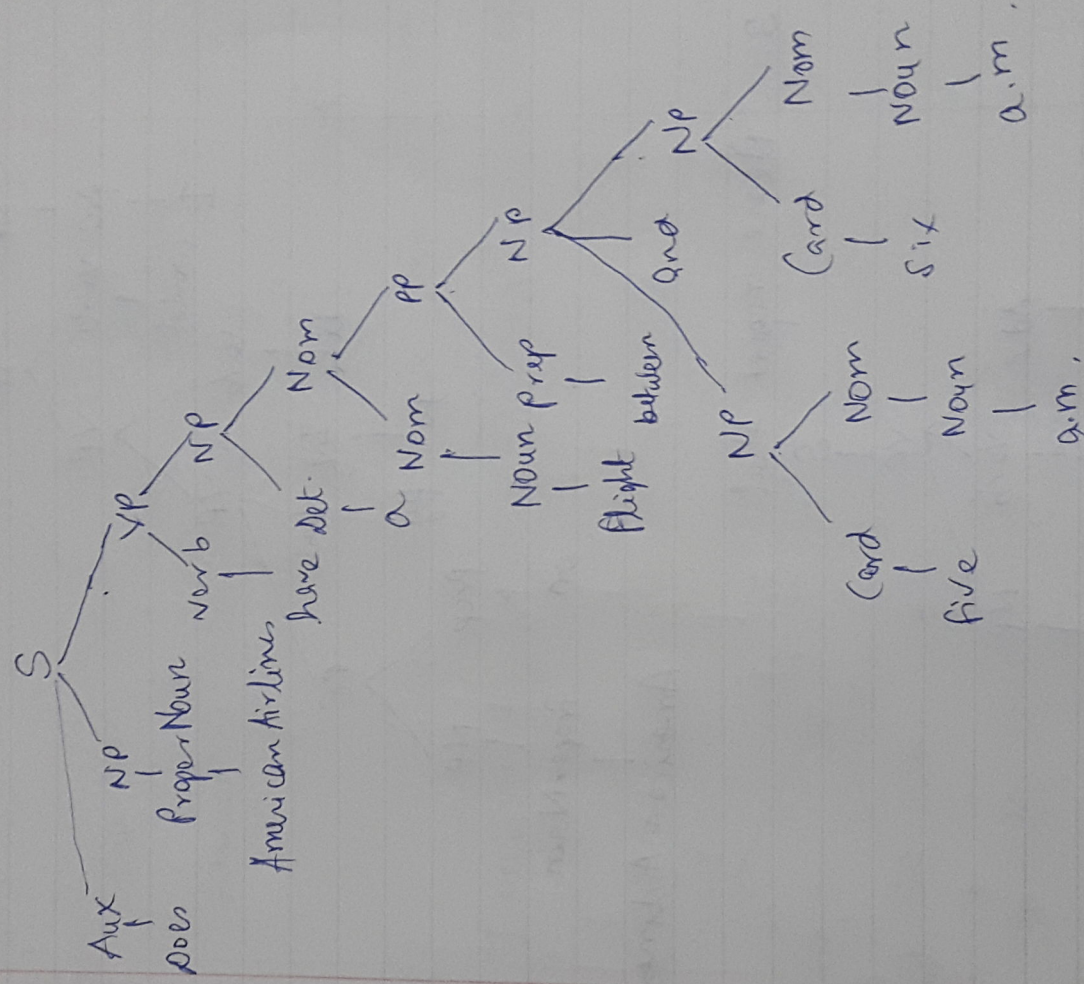 S
Aux NP VP
Does ProperNoun Verb NP
American Airlines have Det. Nom
a Nom PP
Noun Prep NP
flight between NP and NP
Card Nom Card Nom
five Noun six Noun
a.m. a.m.